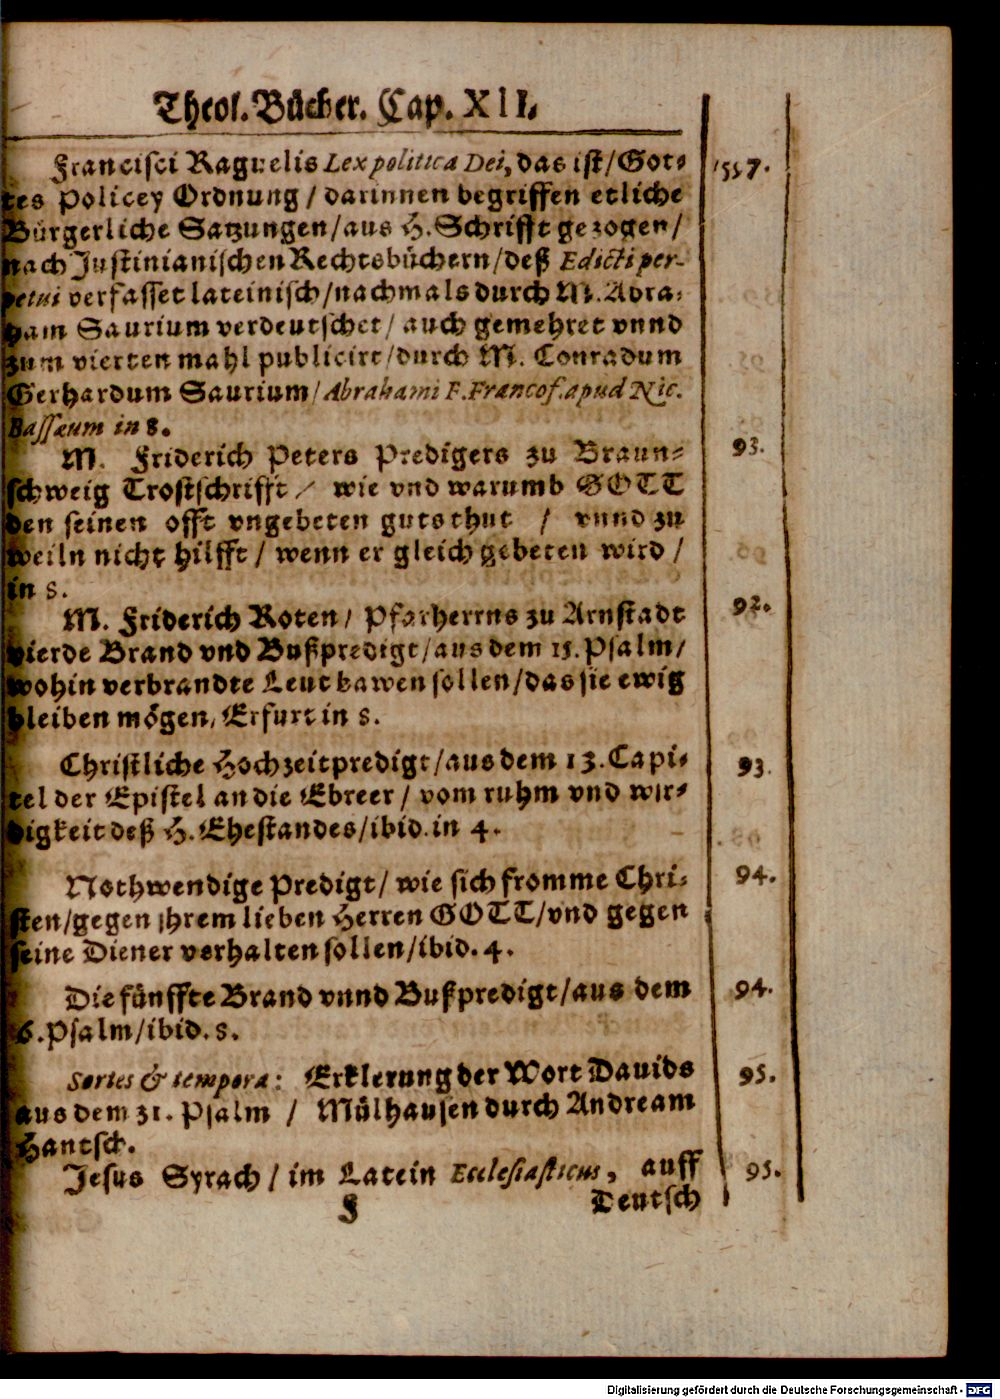 Theol. Bücher. Cap. XII.
Francisci Raguelis Lex politica Dei, das ist/Got- 1597.
tes Policey Ordnung / darinnen begriffen etliche
Bürgerliche Satzungen/aus H. Schrifft gezogen/
nach Justinianischen Rechtsbüchern/deß Edicti per-
petui verfasset lateinisch/nachmals durch M. Abra-
ham Saurium verdeutschet/ auch gemehret vnnd
zum vierten mahl publicirt/durch M. Conradum
Gerhardum Saurium/Abrahami F. Francof. apud Nic.
Bassæum in 8.
M. Friderich Peters Predigers zu Braun- 93.
schweig Trostschrifft / wie vnd warumb GOTT
den seinen offt vngebeten guts thut / vnnd zu
weiln nicht hilfft / wenn er gleich gebeten wird /
in 8.
M. Friderich Roten/ Pfarherrns zu Arnstadt 92.
vierde Brand vnd Bußpredigt/aus dem 15. Psalm/
wohin verbrandte Leut bawen sollen/das sie ewig
bleiben mögen, Erfurt in 8.
Christliche Hochzeitpredigt/aus dem 13. Capi- 93.
tel der Epistel an die Ebreer / vom ruhm vnd wir-
digkeit deß H. Ehestandes/ibid. in 4.
Nothwendige Predigt/ wie sich fromme Chri- 94.
sten/gegen ihrem lieben Herren GOTT/vnd gegen
seine Diener verhalten sollen/ibid. 4.
Die fünffte Brand vnnd Bußpredigt/aus dem 94.
6. Psalm/ibid. 8.
Sortes & tempora: Erklerung der Wort Dauids 95.
aus dem 31. Psalm / Mülhausen durch Andream
Hantsch.
Jesus Syrach / im Latein Ecclesiasticus, auff 95.
J Deutsch
Digitalisierung gefördert durch die Deutsche Forschungsgemeinschaft - DFG